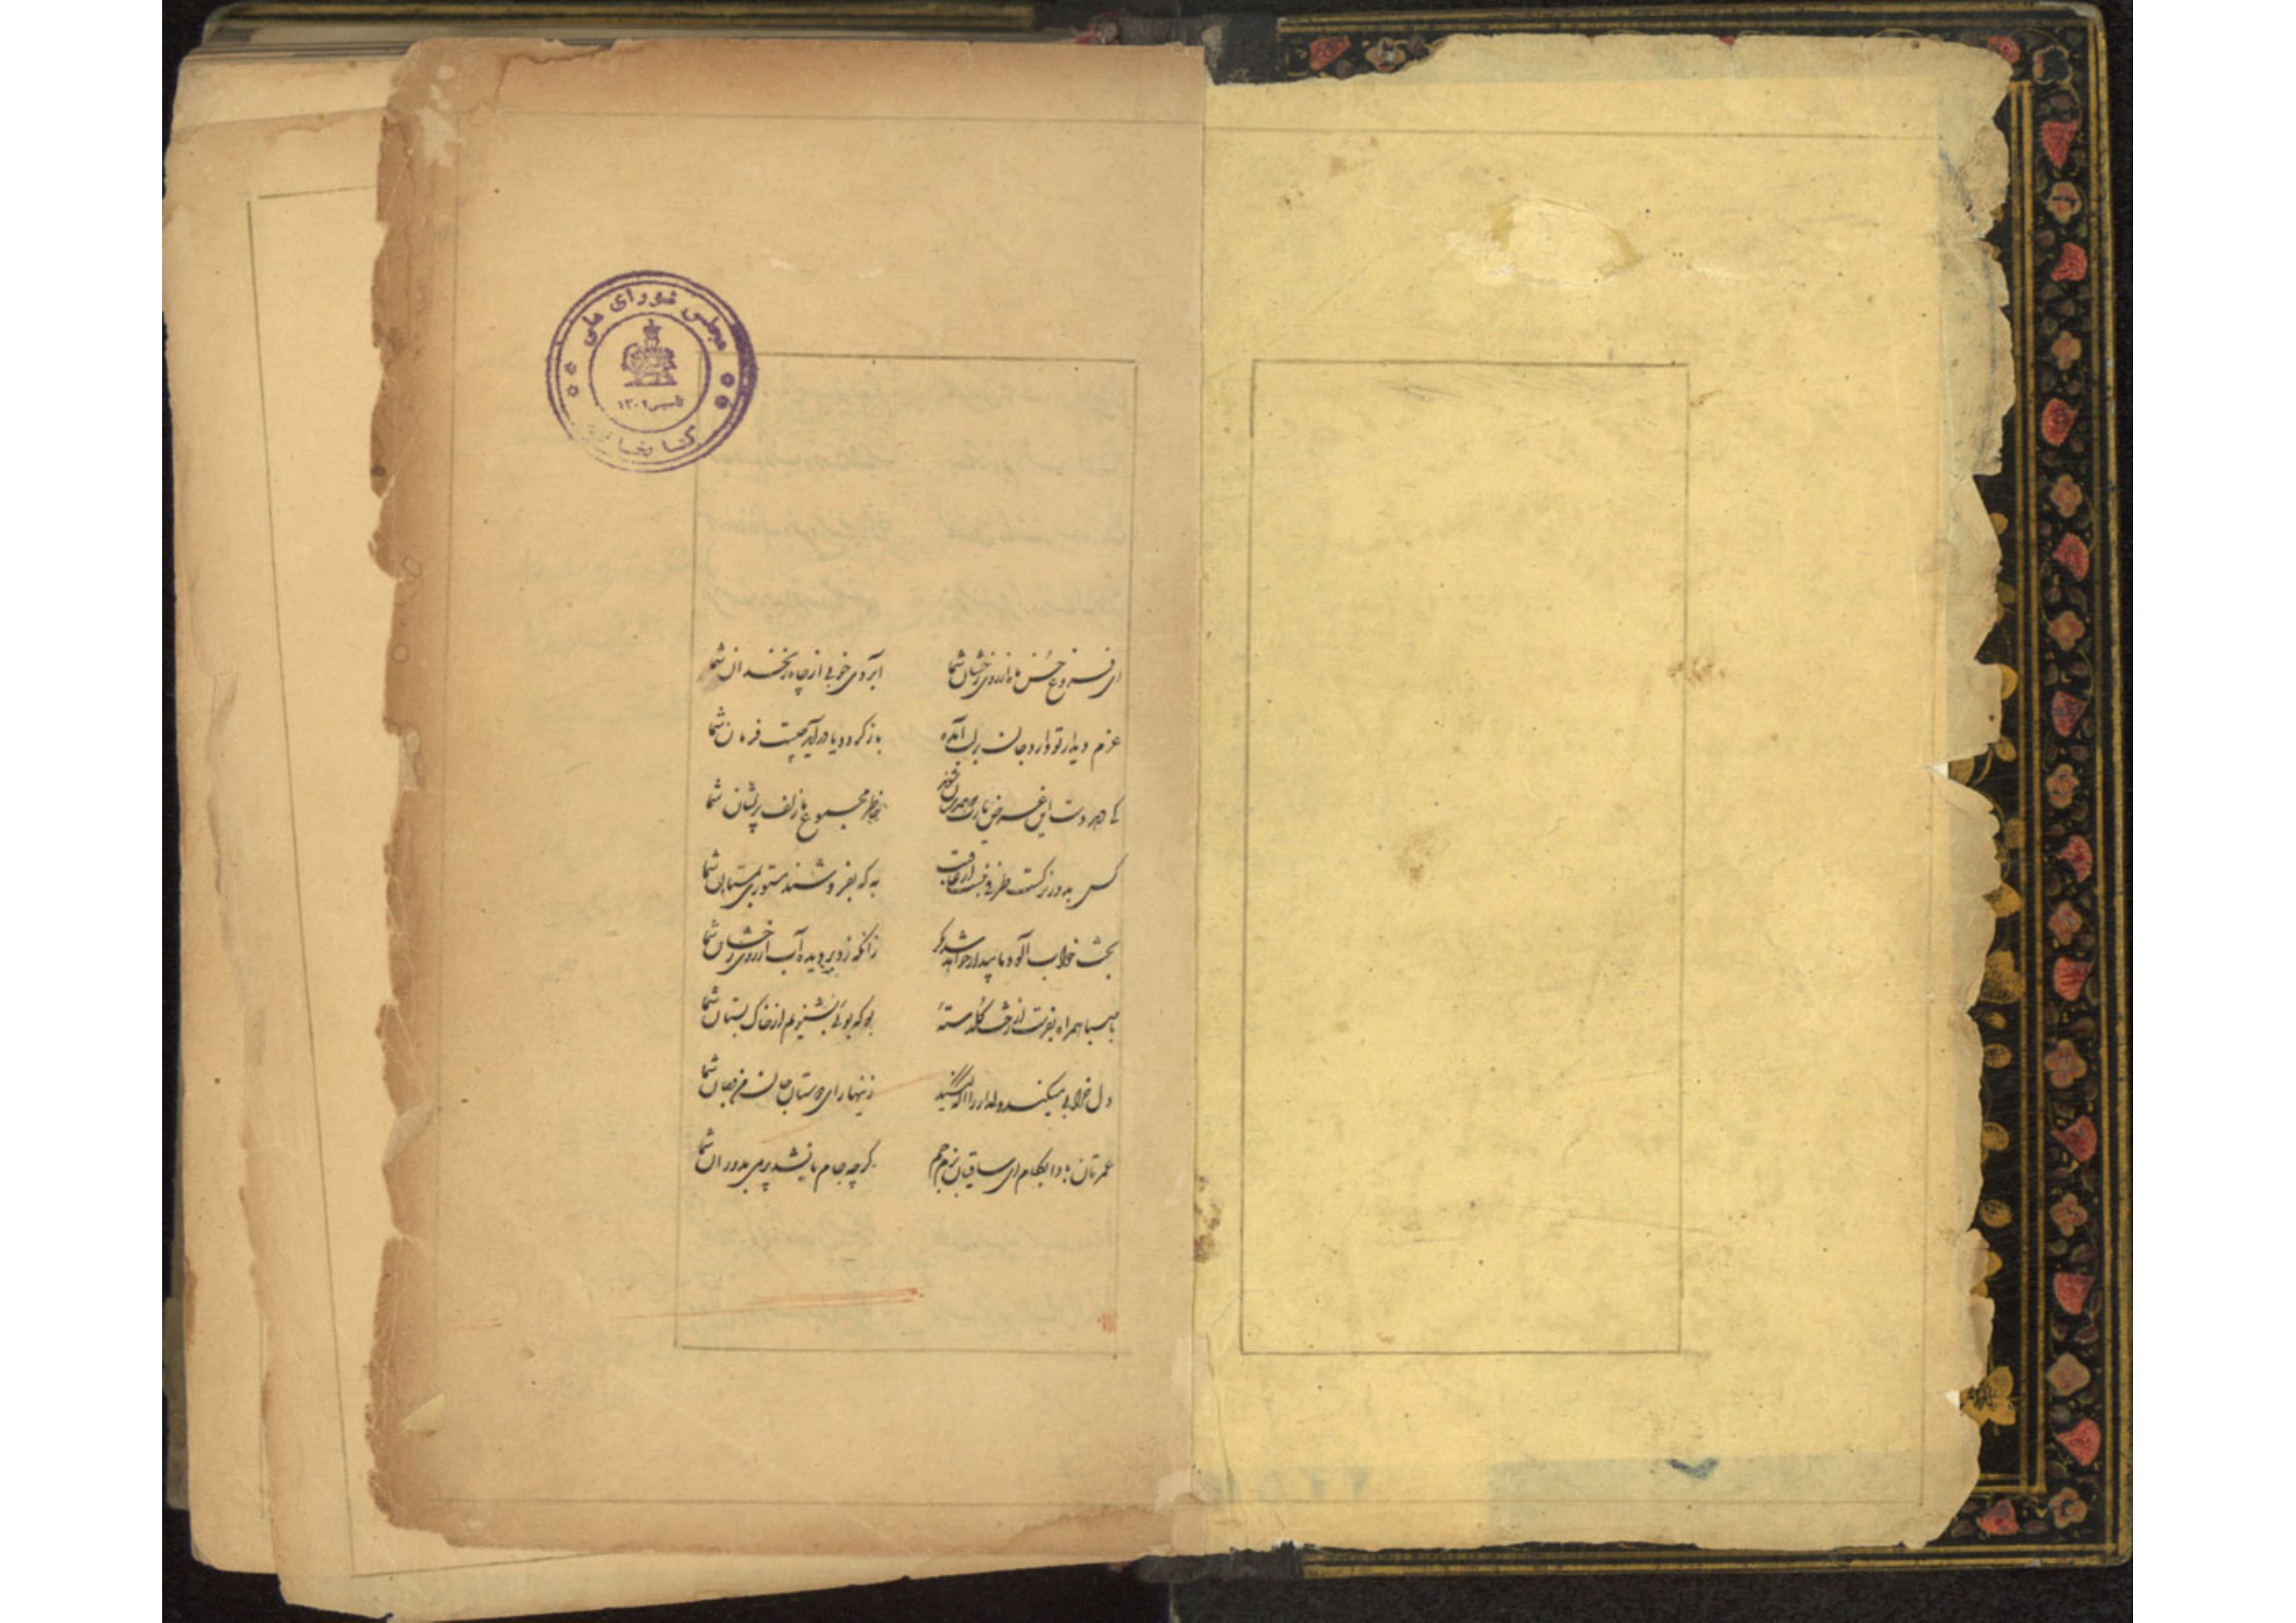 مجلس شورای ملی
تاسیس ۱۳۰۲
کتابخانه
ای فروغ حسن ماه از روی رخشان شما آبروی خوبی از چاه زنخدان شما
عزم دیدار تو دارد جان بر لب آمده باز گردد یا درآید چیست فرمان شما
کی دهد دست این غرض یا رب که همدستان شوند خاطر مجموع ما زلف پریشان شما
کس به دور نرگست طرفی نبست از عافیت به که نفروشند مستوری بمستان شما
بخت خواب آلود ما بیدار خواهد شد مگر زانکه زد بر دیده آب از روی رخشان شما
با صبا همراه بفرست از رخت گلدستهٔ بو که بوئی بشنویم از خاک بستان شما
دل خرابی میکند دلدار را آگه کنید زینهار ای دوستان جان من و جان شما
عمرتان بادا بکام ای ساقیان بزم جم گرچه جام ما نشد پر می بدوران شما